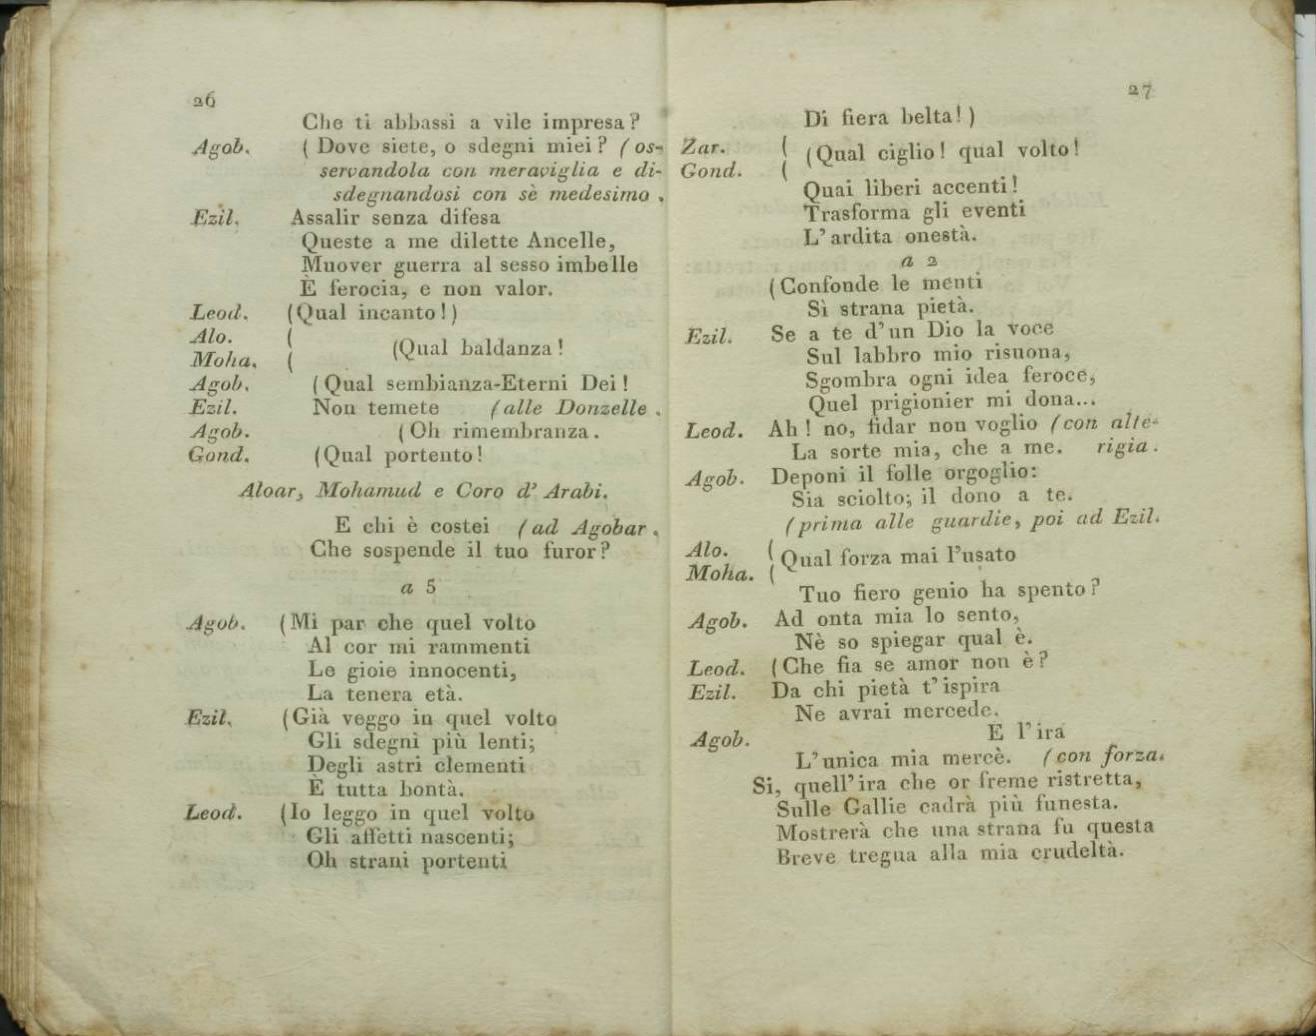 26
Che ti abbassi a vile impresa?
Agob. ( Dove siete, o sdegni miei? (os-
servandola con meraviglia e di-
sdegnandosi con sè medesimo .
Ezil. Assalir senza difesa
Queste a me dilette Ancelle,
Muover guerra al sesso imbelle
È ferocia, e non valor.
Leod. (Qual incanto!)
Alo. (
Moha. ( (Qual baldanza!
Agob. (Qual sembianza-Eterni Dei!
Ezil. Non temete (alle Donzelle .
Agob. (Oh rimembranza.
Gond. (Qual portento!
Aloar, Mohamud e Coro d' Arabi.
E chi è costei (ad Agobar .
Che sospende il tuo furor?
a 5
Agob. (Mi par che quel volto
Al cor mi rammenti
Le gioie innocenti,
La tenera età.
Ezil. (Già veggo in quel volto
Gli sdegni più lenti;
Degli astri clementi
È tutta bontà.
Leod. (Io leggo in quel volto
Gli affetti nascenti;
Oh strani portenti
27
Di fiera belta!)
Zar. (
Gond. ( (Qual ciglio! qual volto!
Quai liberi accenti!
Trasforma gli eventi
L' ardita onestà.
a 2
(Confonde le menti
Sì strana pietà.
Ezil. Se a te d' un Dio la voce
Sul labbro mio risuona,
Sgombra ogni idea feroce,
Quel prigionier mi dona...
Leod. Ah! no, fidar non voglio (con alte-
La sorte mia, che a me. rigia.
Agob. Deponi il folle orgoglio:
Sia sciolto; il dono a te.
(prima alle guardie, poi ad Ezil.
Alo. (
Moha. ( Qual forza mai l'usato
Tuo fiero genio ha spento?
Agob. Ad onta mia lo sento,
Nè so spiegar qual è.
Leod. (Che fia se amor non è?
Ezil. Da chi pietà t' ispira
Ne avrai mercede.
Agob. E l' ira
L' unica mia mercè. (con forza.
Si, quell' ira che or freme ristretta,
Sulle Gallie cadrà più funesta.
Mostrerà che una strana fu questa
Breve tregua alla mia crudeltà.